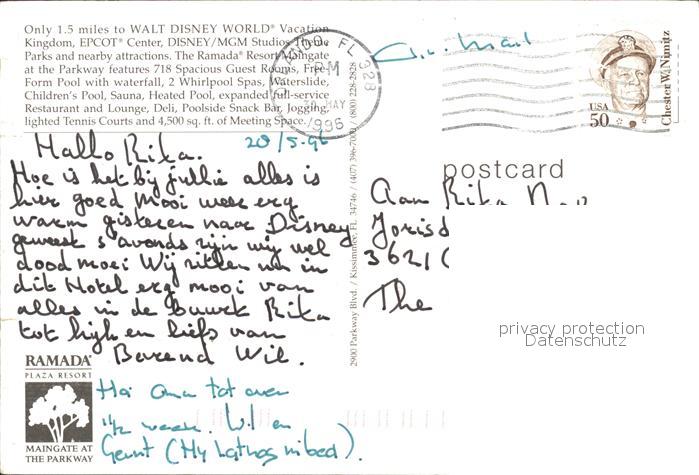 Only 1.5 miles to WALT DISNEY WORLD® Vacation
Kingdom, EPCOT® Center, DISNEY/MGM Studios Theme
Parks and nearby attractions. The Ramada® Resort Maingate
at the Parkway features 718 Spacious Guest Rooms, Free
Form Pool with waterfall, 2 Whirlpool Spas, Waterslide,
Children's Pool, Sauna, Heated Pool, expanded full-service
Restaurant and Lounge, Deli, Poolside Snack Bar, Jogging,
lighted Tennis Courts and 4,500 sq. ft. of Meeting Space.
FL 328
PM
30 MAY
1996
USA
50
Chester W. Nimitz
28/5-96
postcard
Hallo Rika.
Hoe is het bij jullie alles is
hier goed Mooi weer erg
warm gisteren naar Disney
geweest s'avonds zijn wij wel
dood moei Wij zitten nu in
dit Hotel erg mooi van
alles in de buurt Rika
tot kijk en liefs van
Barend Wil.
Aan Rika
Jorisd
3621
The
2900 Parkway Blvd. / Kissimmee, FL 34746 / (407) 396-7000 / (800) 228-2828
privacy protection
Datenschutz
RAMADA®
PLAZA RESORT
MAINGATE AT
THE PARKWAY
Hoi Oma tot over
1 1/2 week. Wil en
Gerrit